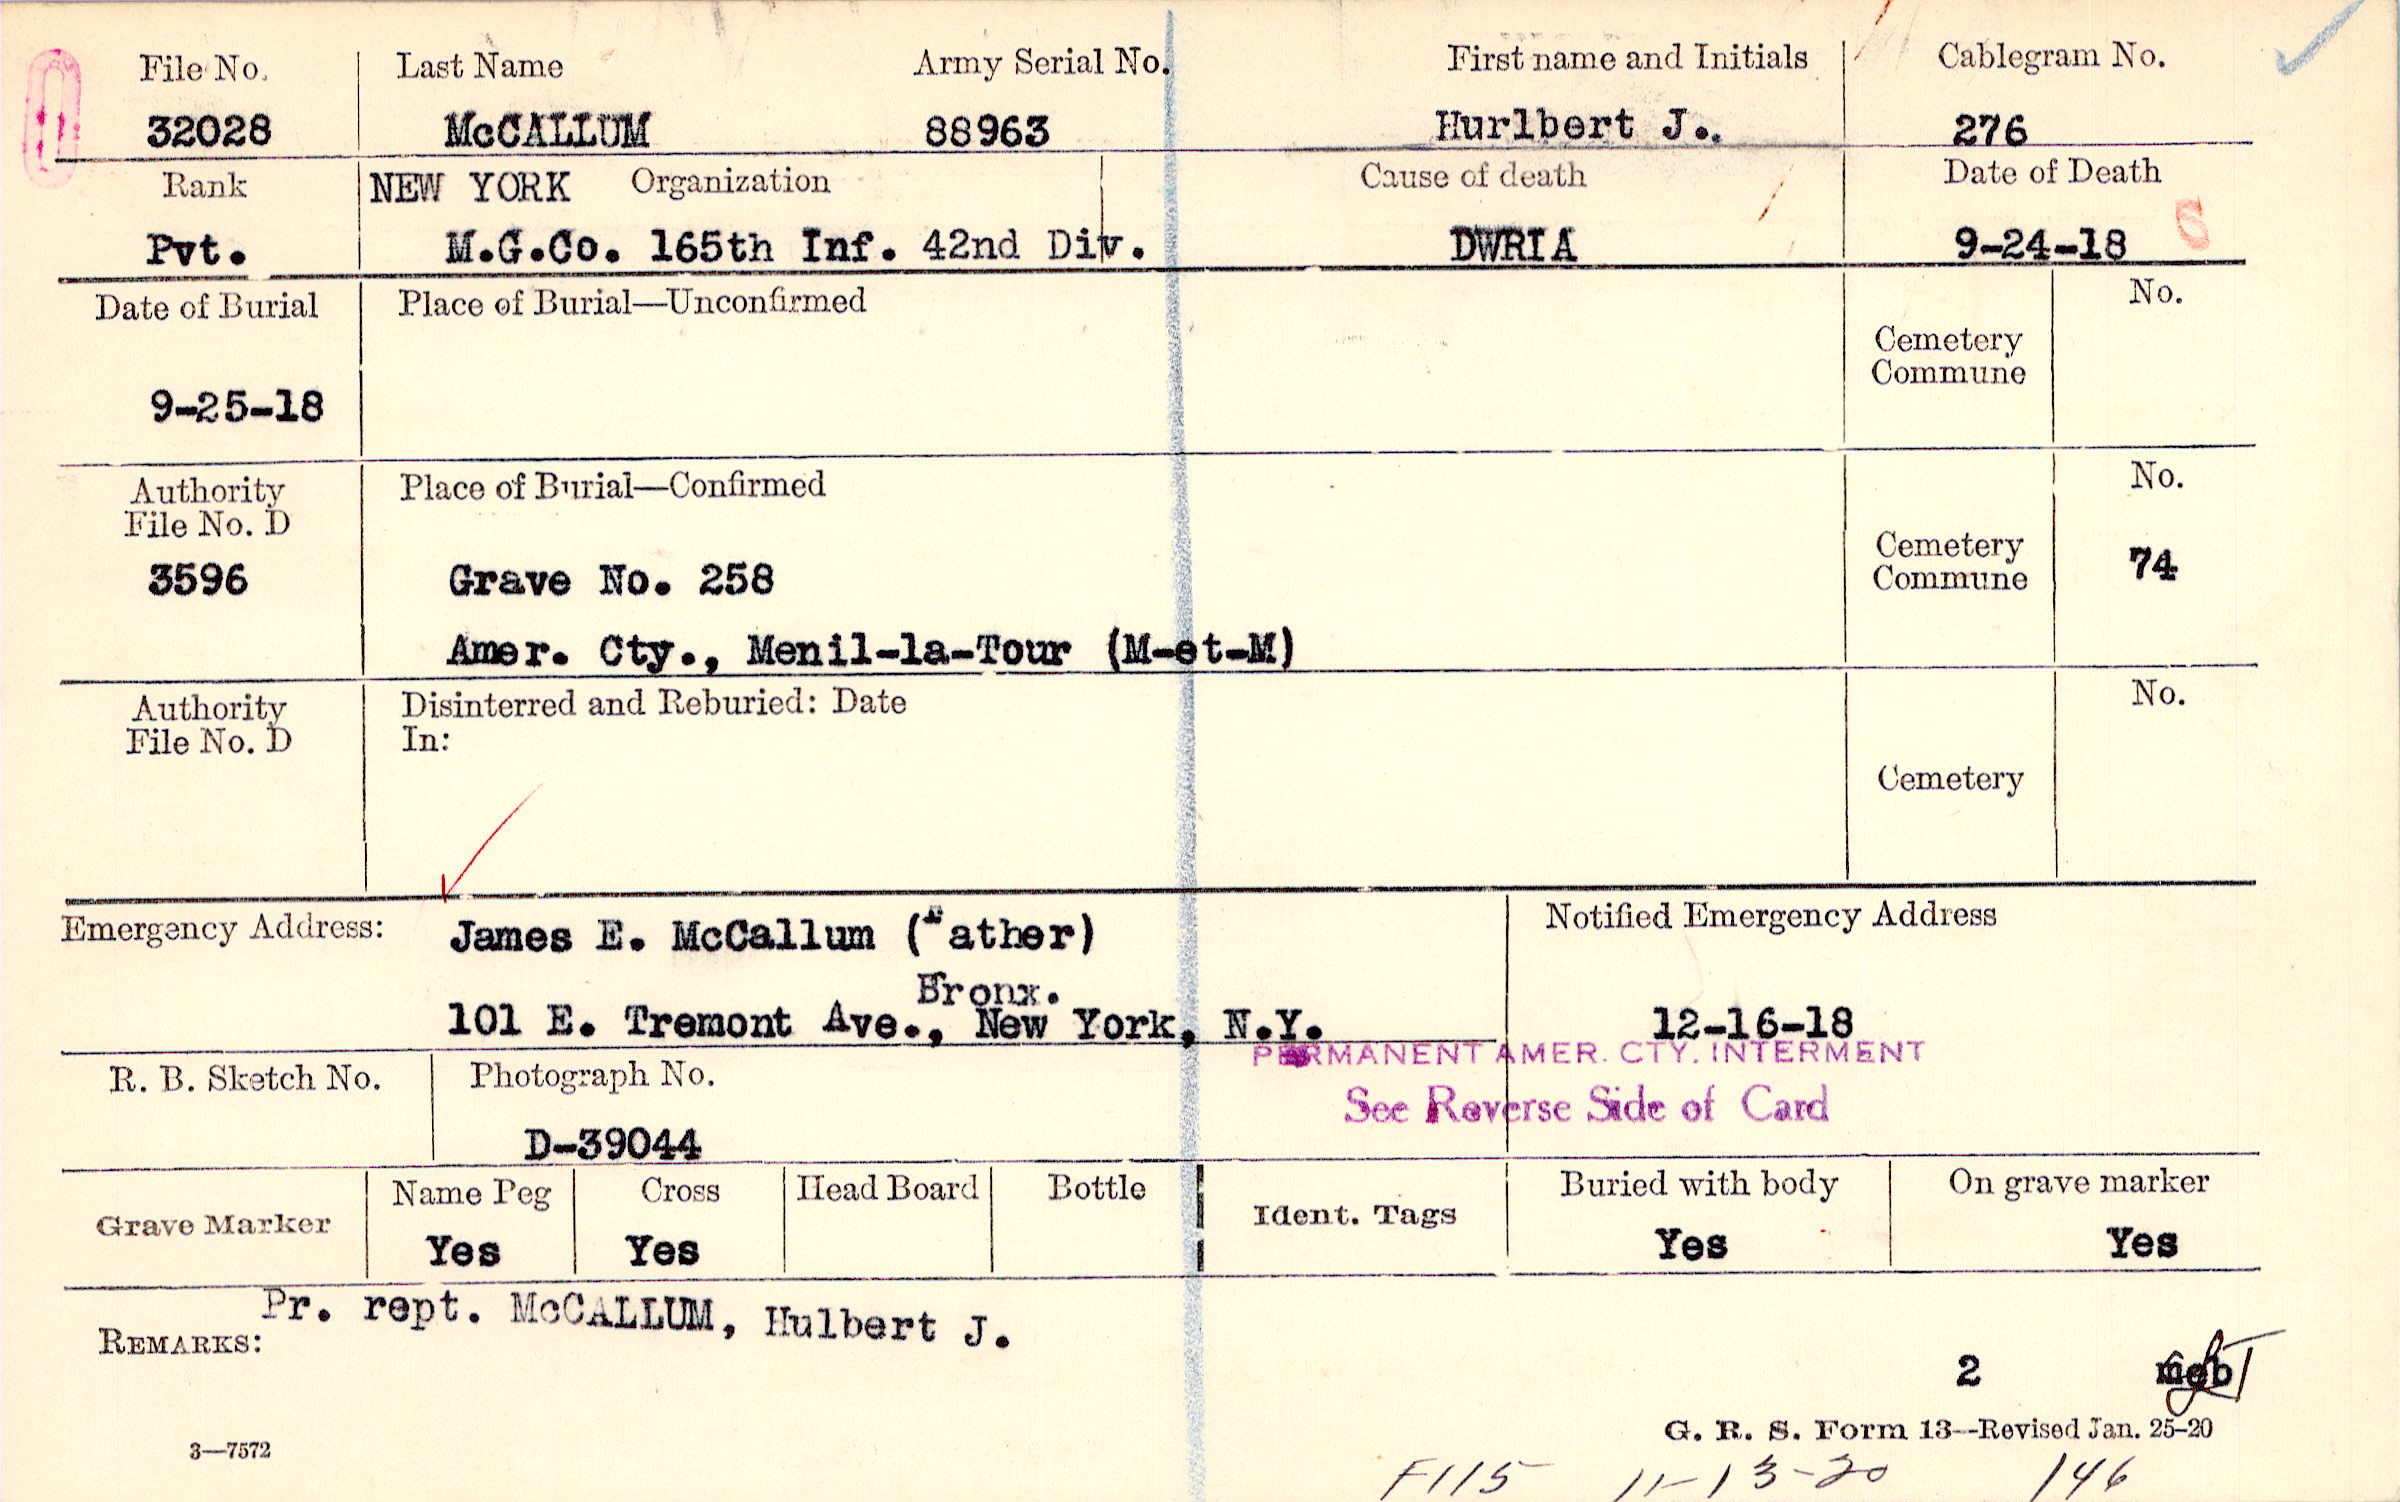 File No. Last Name Army Serial No. First name and Initials Cablegram No.
32028 McCALLUM 88963 Hurlbert J. 276
Rank NEW YORK Organization Cause of death Date of Death
Pvt. M.G.Co. 165th Inf. 42nd Div. DWRIA 9-24-18
Date of Burial Place of Burial—Unconfirmed No.
Cemetery
Commune
9-25-18
Authority Place of Burial—Confirmed No.
File No. D
Cemetery
Commune
3596 Grave No. 258 74
Amer. Cty., Menil-la-Tour (M-et-M)
Authority Disinterred and Reburied: Date No.
File No. D In:
Cemetery
Emergency Address: James E. McCallum (Father) Notified Emergency Address
Bronx.
101 E. Tremont Ave., New York, N.Y. 12-16-18
PERMANENT AMER. CTY. INTERMENT
R. B. Sketch No. Photograph No.
See Reverse Side of Card
D-39044
Grave Marker Name Peg Cross Head Board Bottle Ident. Tags Buried with body On grave marker
Yes Yes Yes Yes
Pr. rept. McCALLUM, Hulbert J.
REMARKS:
2
G. R. S. Form 13—Revised Jan. 25-20
3—7572
F115 11-13-20 146